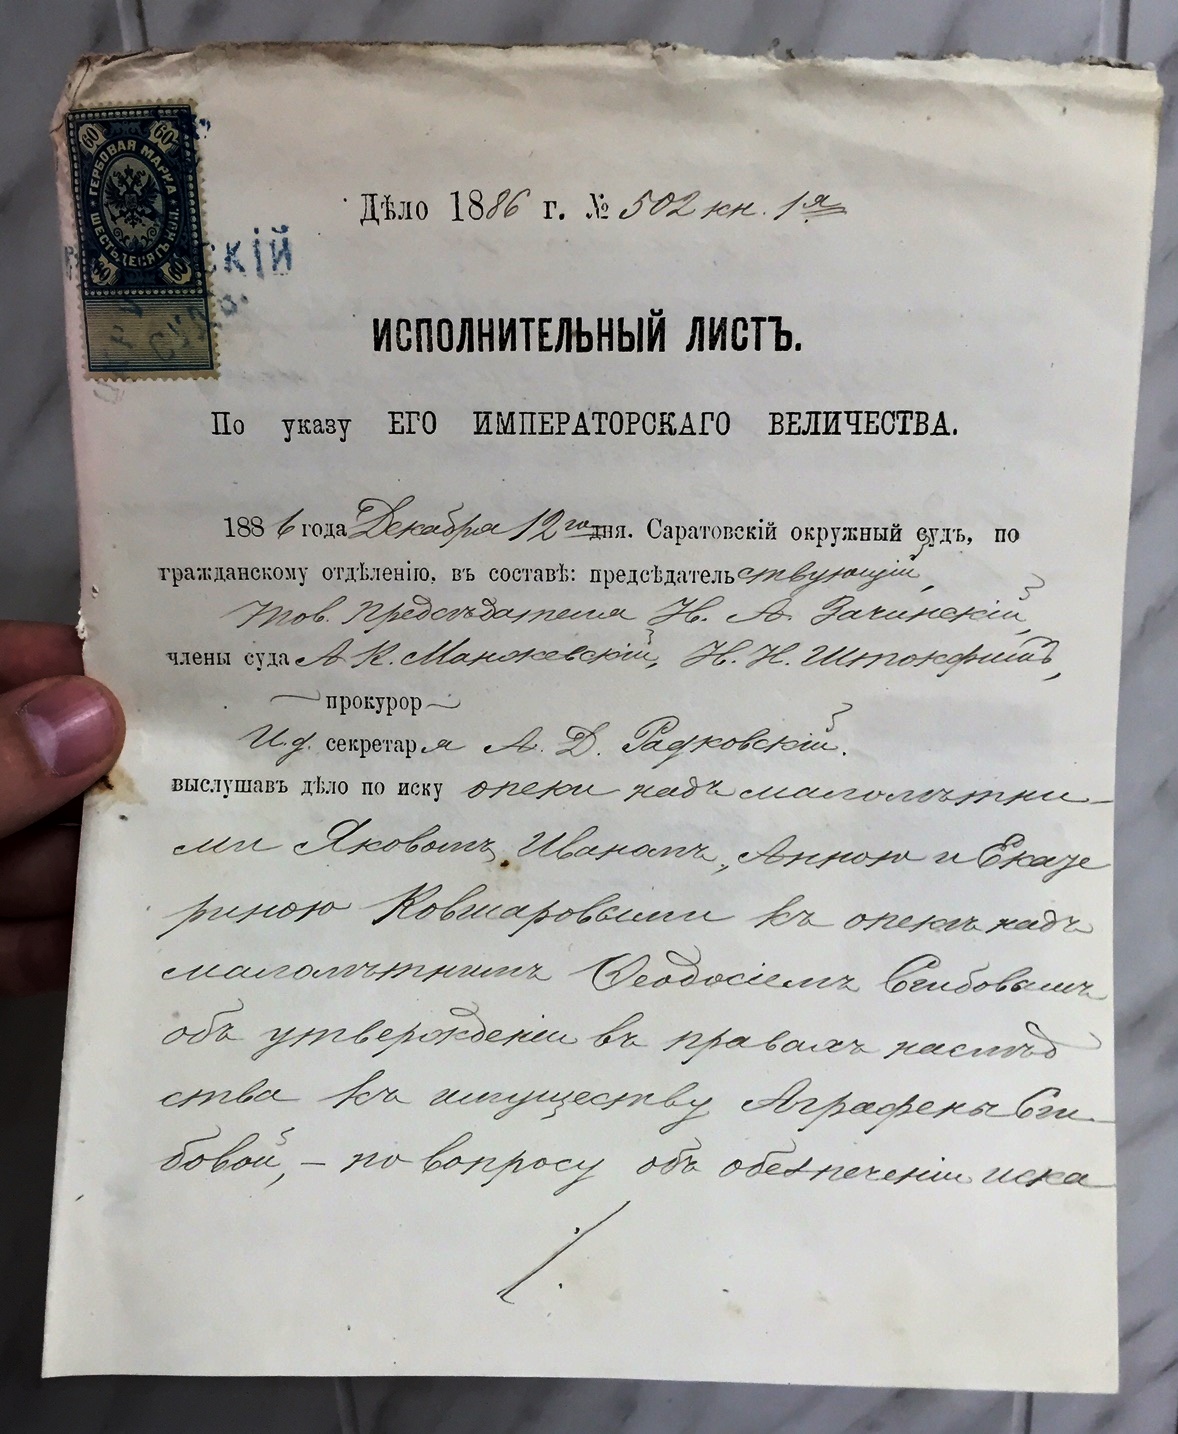 60 60
ГЕРБОВАЯ МАРКА
ШЕСТЬДЕСЯТЬ КОП.
60 60
СКІЙ
Дѣло 1886 г. № 502 кн. 1я
ИСПОЛНИТЕЛЬНЫЙ ЛИСТЪ.
По указу ЕГО ИМПЕРАТОРСКАГО ВЕЛИЧЕСТВА.
1886 года Декабря 12го дня. Саратовскій окружный судъ, по
гражданскому отдѣленію, въ составѣ: предсѣдательствующій,
Тов. Предсѣдателя Н. А. Зачинскій,
члены суда А. К. Манжевскій, Н. Н. Штокфишъ,
прокурор
И. д. секретаря А. Д. Радковскій.
выслушавъ дѣло по иску опеки надъ малолѣтни-
ми Яковомъ, Иваномъ, Анною и Екате
риною Ковшаровыми къ опекѣ надъ
малолѣтнимъ Ѳеодосіемъ Сгибовымъ
объ утвержденіи въ правахъ наслѣд
ства къ имуществу Аграфены Сги-
бовой, – по вопросу объ обезпеченіи иска